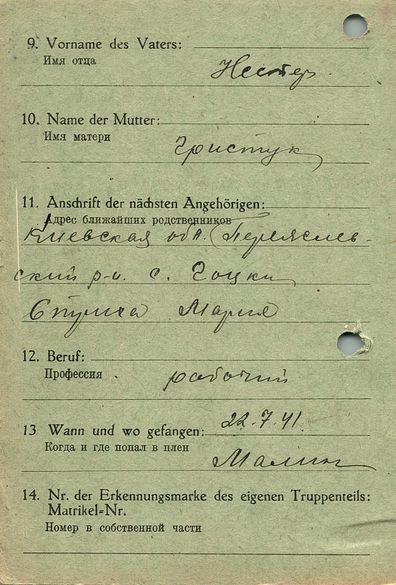 9. Vorname des Vaters:
Имя отца
Нестер
10. Name der Mutter:
Имя матери
Гристук
11. Anschrift der nächsten Angehörigen:
Адрес ближайших родственников
Киевская обл. (Переяслев-
ский р-н. с. Гоцки
Мария
12. Beruf:
Профессия
рабочий
13 Wann und wo gefangen: 22.7.41
Когда и где попал в плен
Малин
14. Nr. der Erkennungsmarke des eigenen Truppenteils:
Matrikel=Nr.
Номер в собственной части